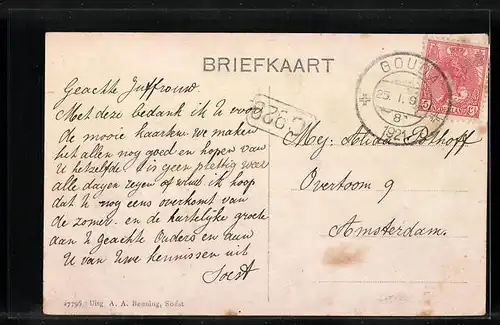 BRIEFKAART
Geachte Juffrouw.
Met deze bedank ik U voor
de mooie kaarten. we maken
het allen nog goed en hopen van
U hetzelfde is geen plettig war
alle dagen regen of wind ik hoop
dat U nog eens overkomt van
de zomer. en de hartelijke groete
aan U geachte Ouders en aan
U van Uwe kennissen uit
Soest
GOUDA
25. 1. 9
8
1921
5 NEDERLAND CT
Mej: Potthoff
Overtoom 9
Amsterdam.
Uitg A. A. Benning, Soest